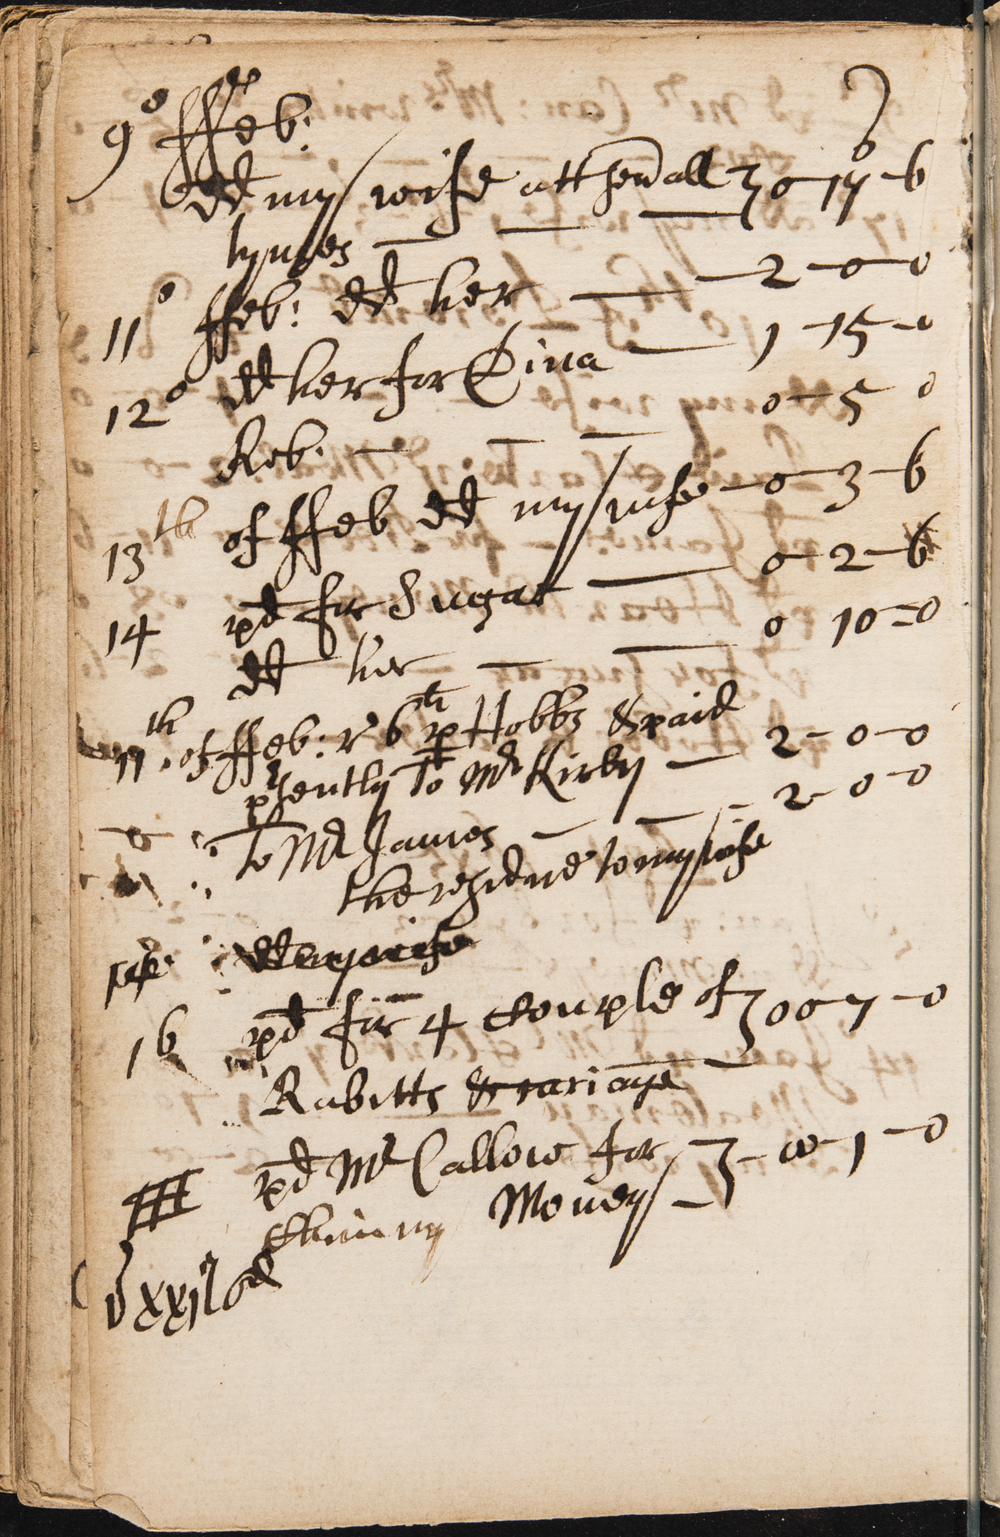 9° ffeb:
dd my wife att sevall } 0-17-6
tymes
11° ffeb: dd her 2-0-0
12° dd her for Dina 1-15-0
Reb. 0-5 0
13th of ffeb dd my wife -0-3-6
14 pd for Sugar 0-2-6
dd her 0 10-0
17th. of ffeb: r 6 th p Hobbs & paid
psently To Mr Kirby 2-0-0
To Mr James 2-0-0
the residue to my wife
dd my wife
16 pd for 4 Couple of } 00-7-0
Rabitts & cariage
pd Mr Callow for } 00-1-0
Chimny Money